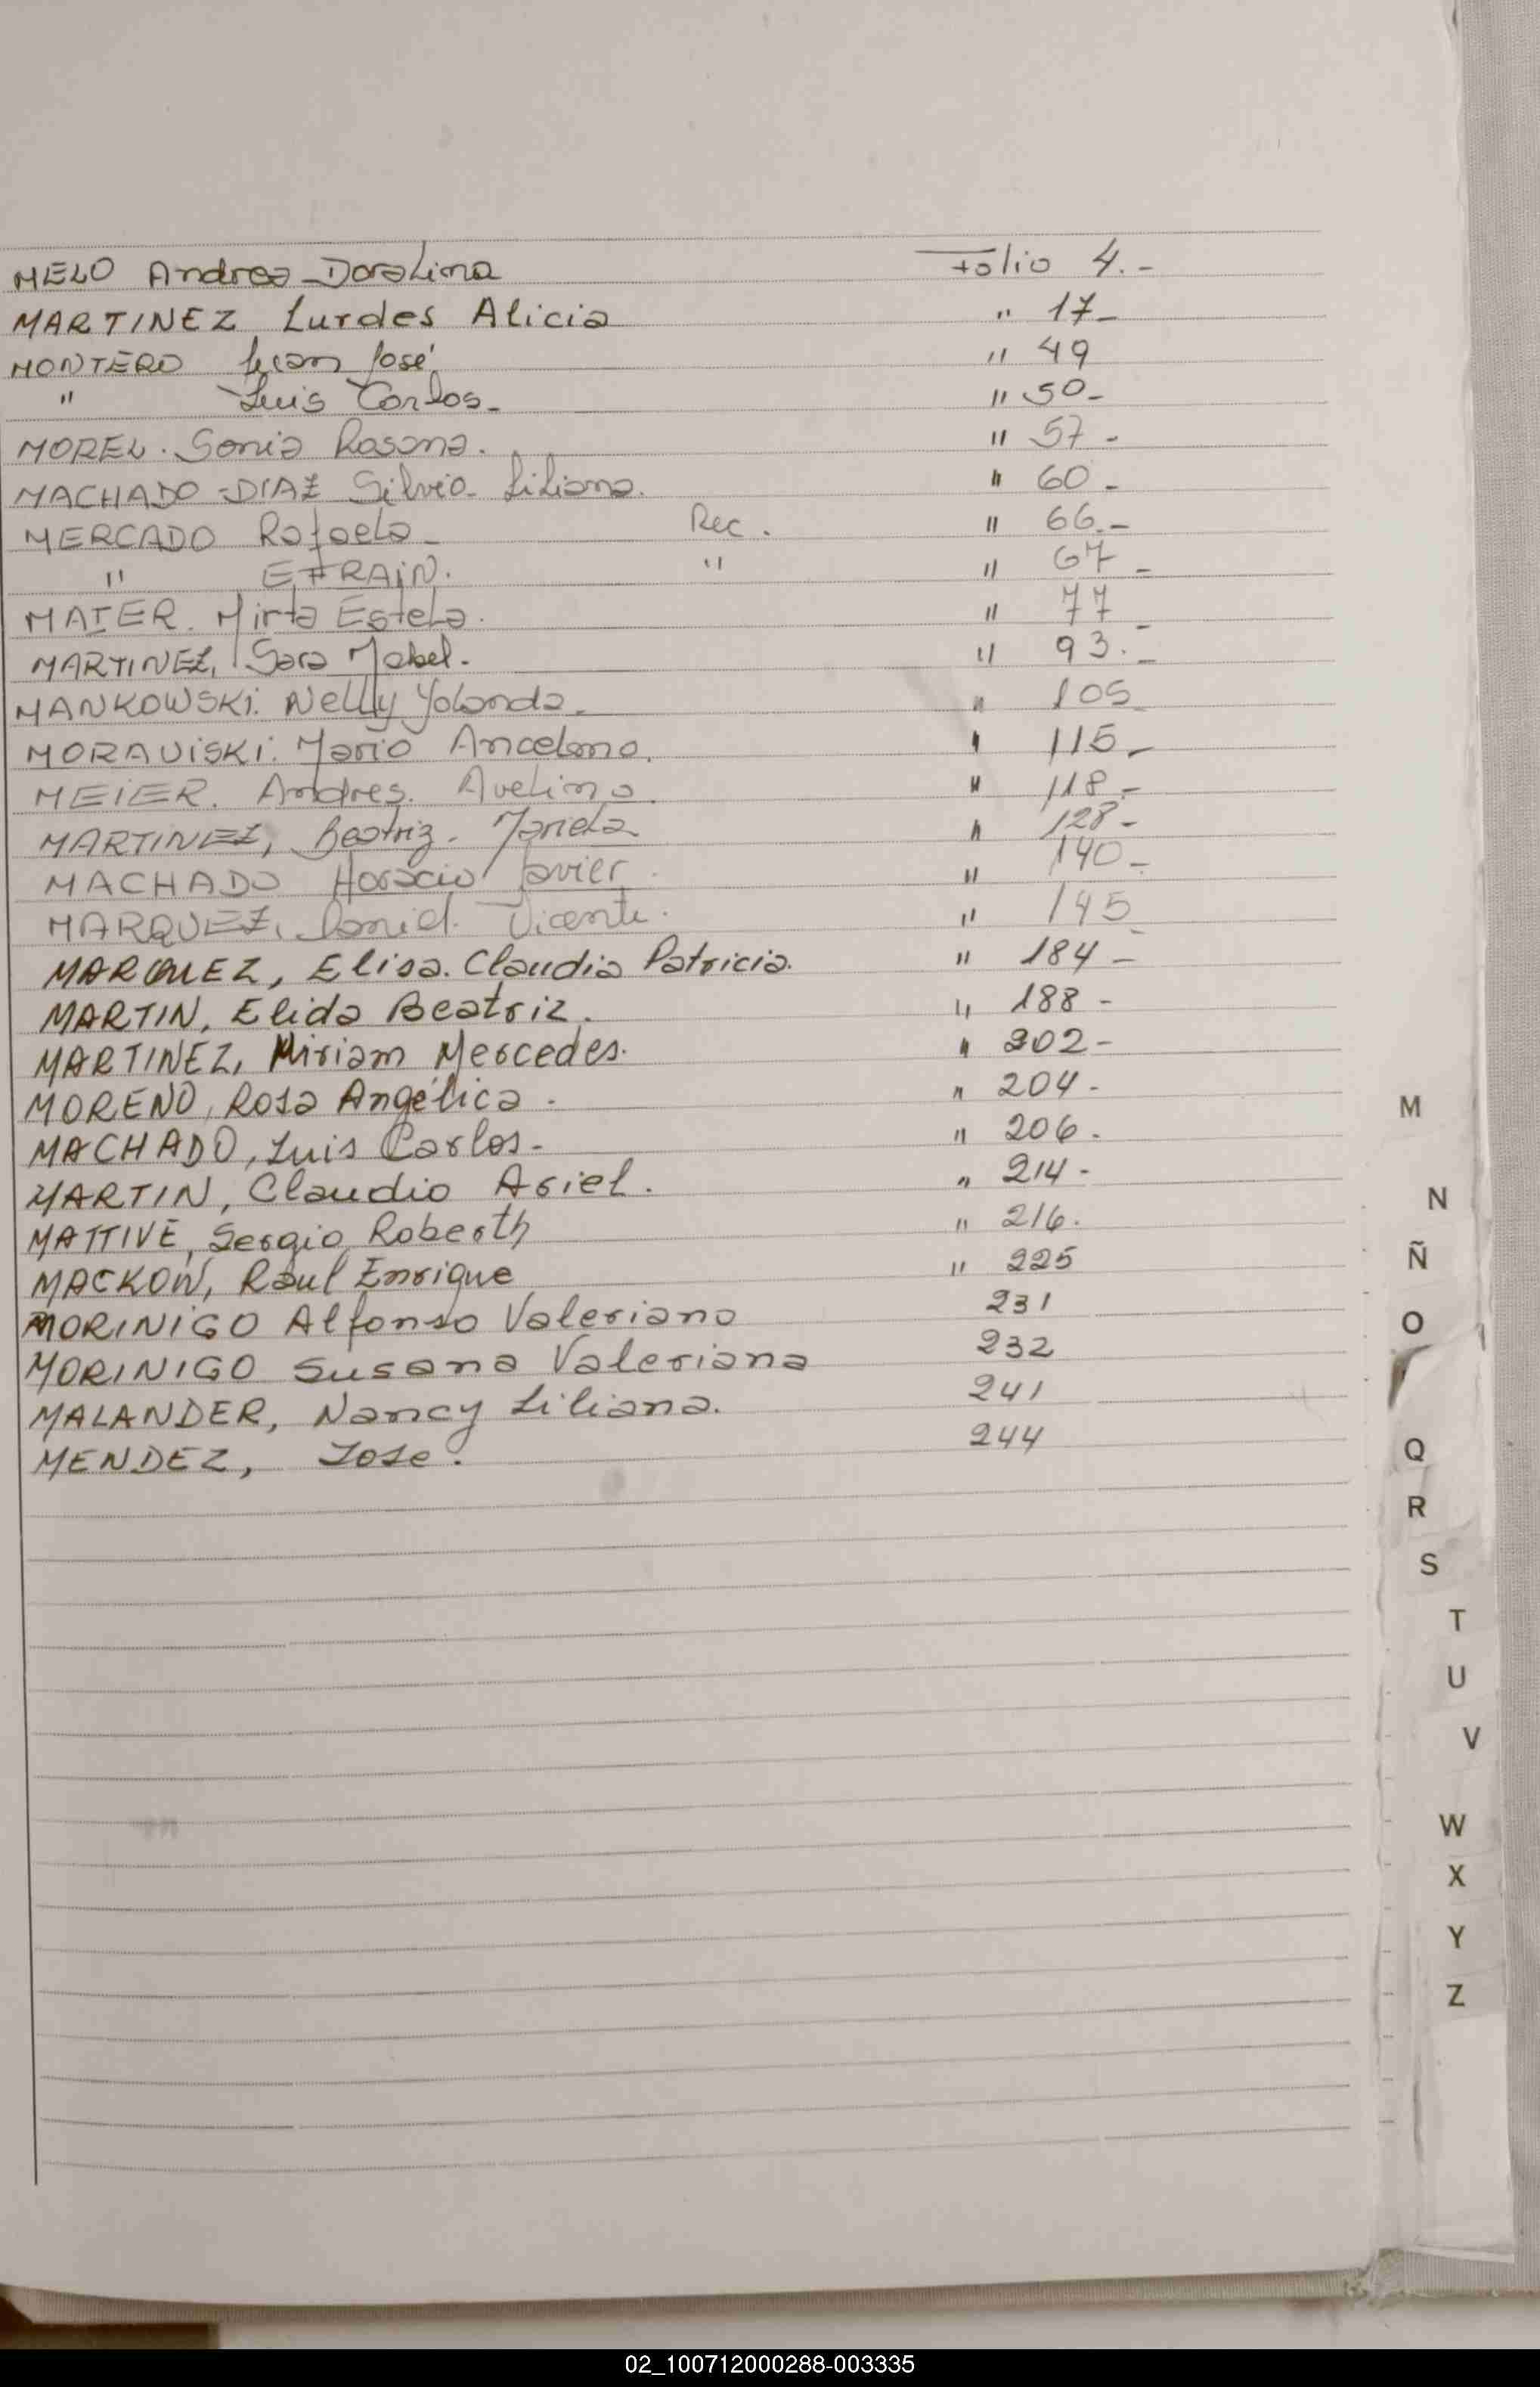 MELO Andrea Doralina Folio 4.-
MARTINEZ Lurdes Alicia " 17-
MONTERO Juan José " 49
" Luis Carlos- " 50-
MOREL. Sonia Rosana. " 57-
MACHADO-DIAZ Silvio- Liliana. " 60-
MERCADO Rafaela- Rec. " 66.-
" EFRAIN. " " 67-
MAIER. Mirta Estela. " 77-
MARTINEZ, Sara Mabel. " 93.-
MANKOWSKI. Nelly Yolanda. " 105-
MORAVISKI. Mario Ancelmo. " 115-
MEIER. Andres. Avelino. " 118-
MARTINEZ, Beatriz. Mariela " 128-
MACHADO Horacio Javier. " 140-
MARQUEZ, Daniel. Vicente. " 145-
MARQUEZ, Elisa. Claudia Patricia. " 184-
MARTIN, Elida Beatriz. " 188-
MARTINEZ, Miriam Mercedes. " 202-
MORENO, Rosa Angélica. " 204-
MACHADO, Luis Carlos- " 206.
MARTIN, Claudio Ariel. " 214-
MATTIVE, Sergio Roberth " 216.
MACKOW, Raul Enrique " 225
MORINIGO Alfonso Valeriano 231
MORINIGO Susana Valeriana 232
MALANDER, Nancy Liliana. 241
MENDEZ, Jose. 244
M
N
Ñ
O
Q
R
S
T
U
V
W
X
Y
Z
02_100712000288-003335